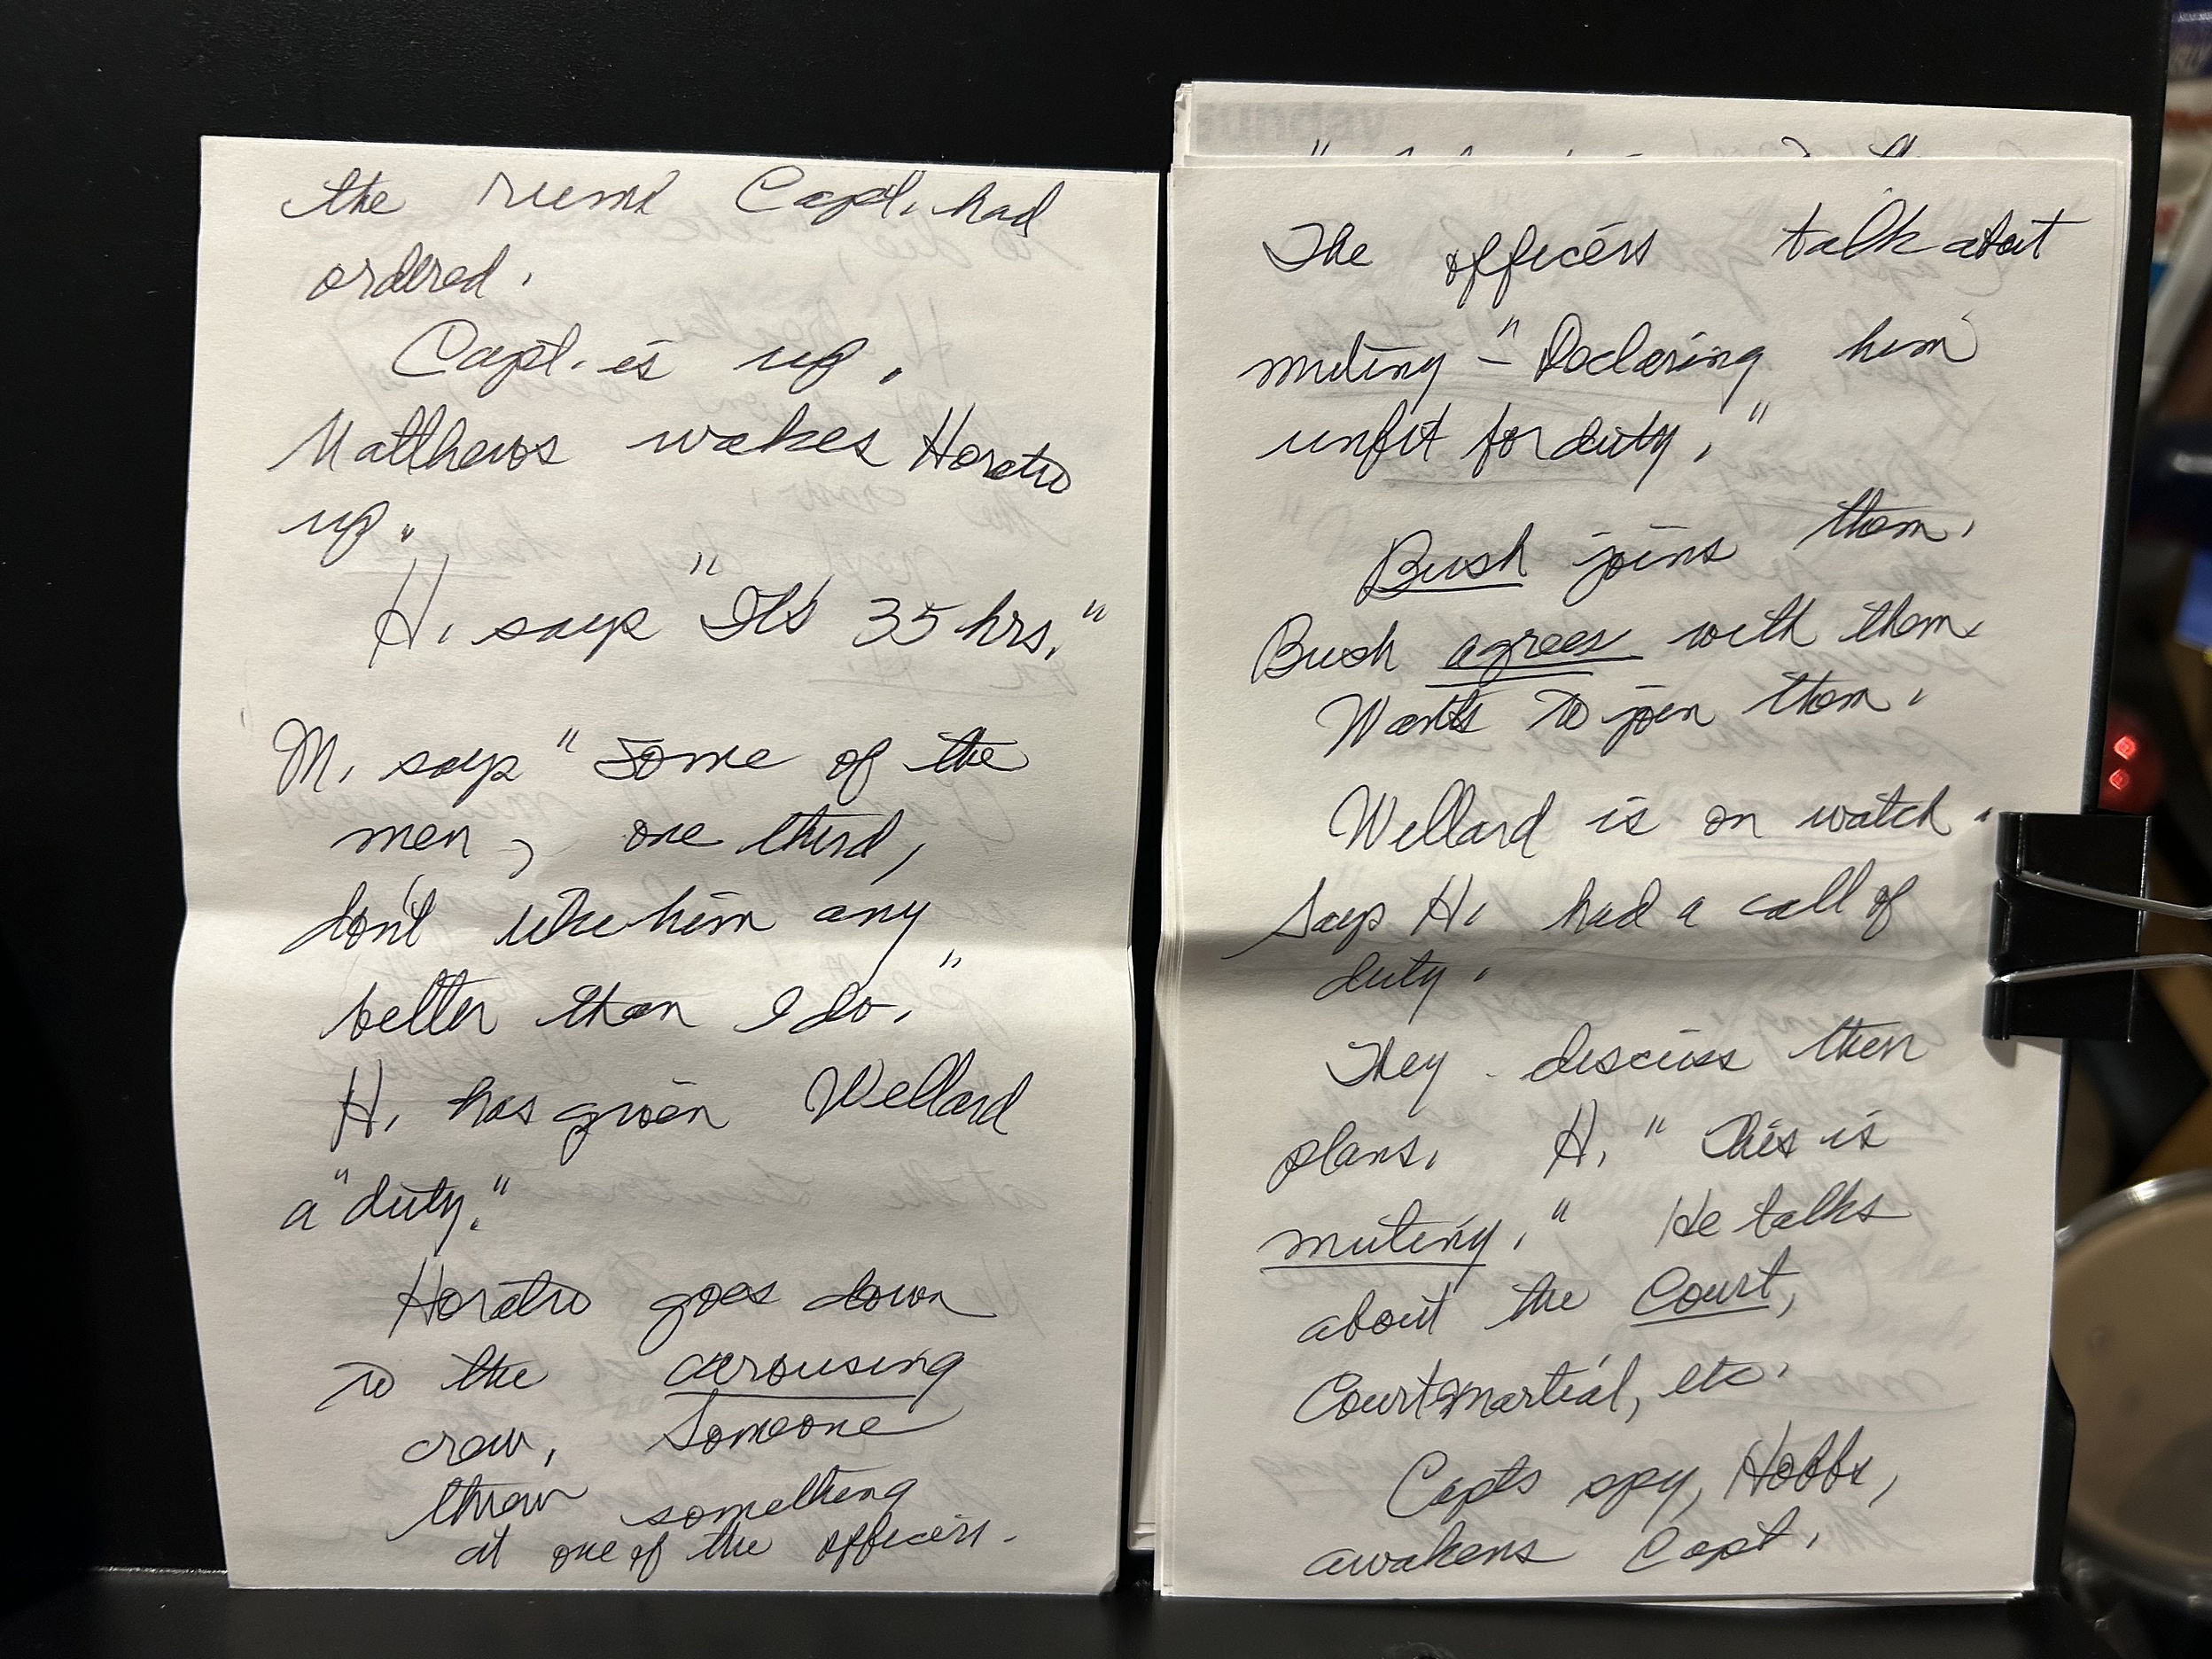 the rum Capt. had
ordered.
Capt. is up.
Matthews wakes Horatio
up.
H. says "It's 35 hrs."
M. says "Some of the
men, one third,
don't like him any
better than I do."
H. has given Wellard
a "duty."
Horatio goes down
to the carousing
crew. Someone
threw something
at one of the officers.
sunday
The officers talk about
mutiny - "Declaring him
unfit for duty."
Bush joins them.
Bush agrees with them.
Wants to join them.
Wellard is on watch.
Says H. had a call of
duty.
They discuss their
plans. H. "This is
mutiny." He talks
about the Court,
Court martial, etc.
Capts spy, Hobbs,
awakens Capt.